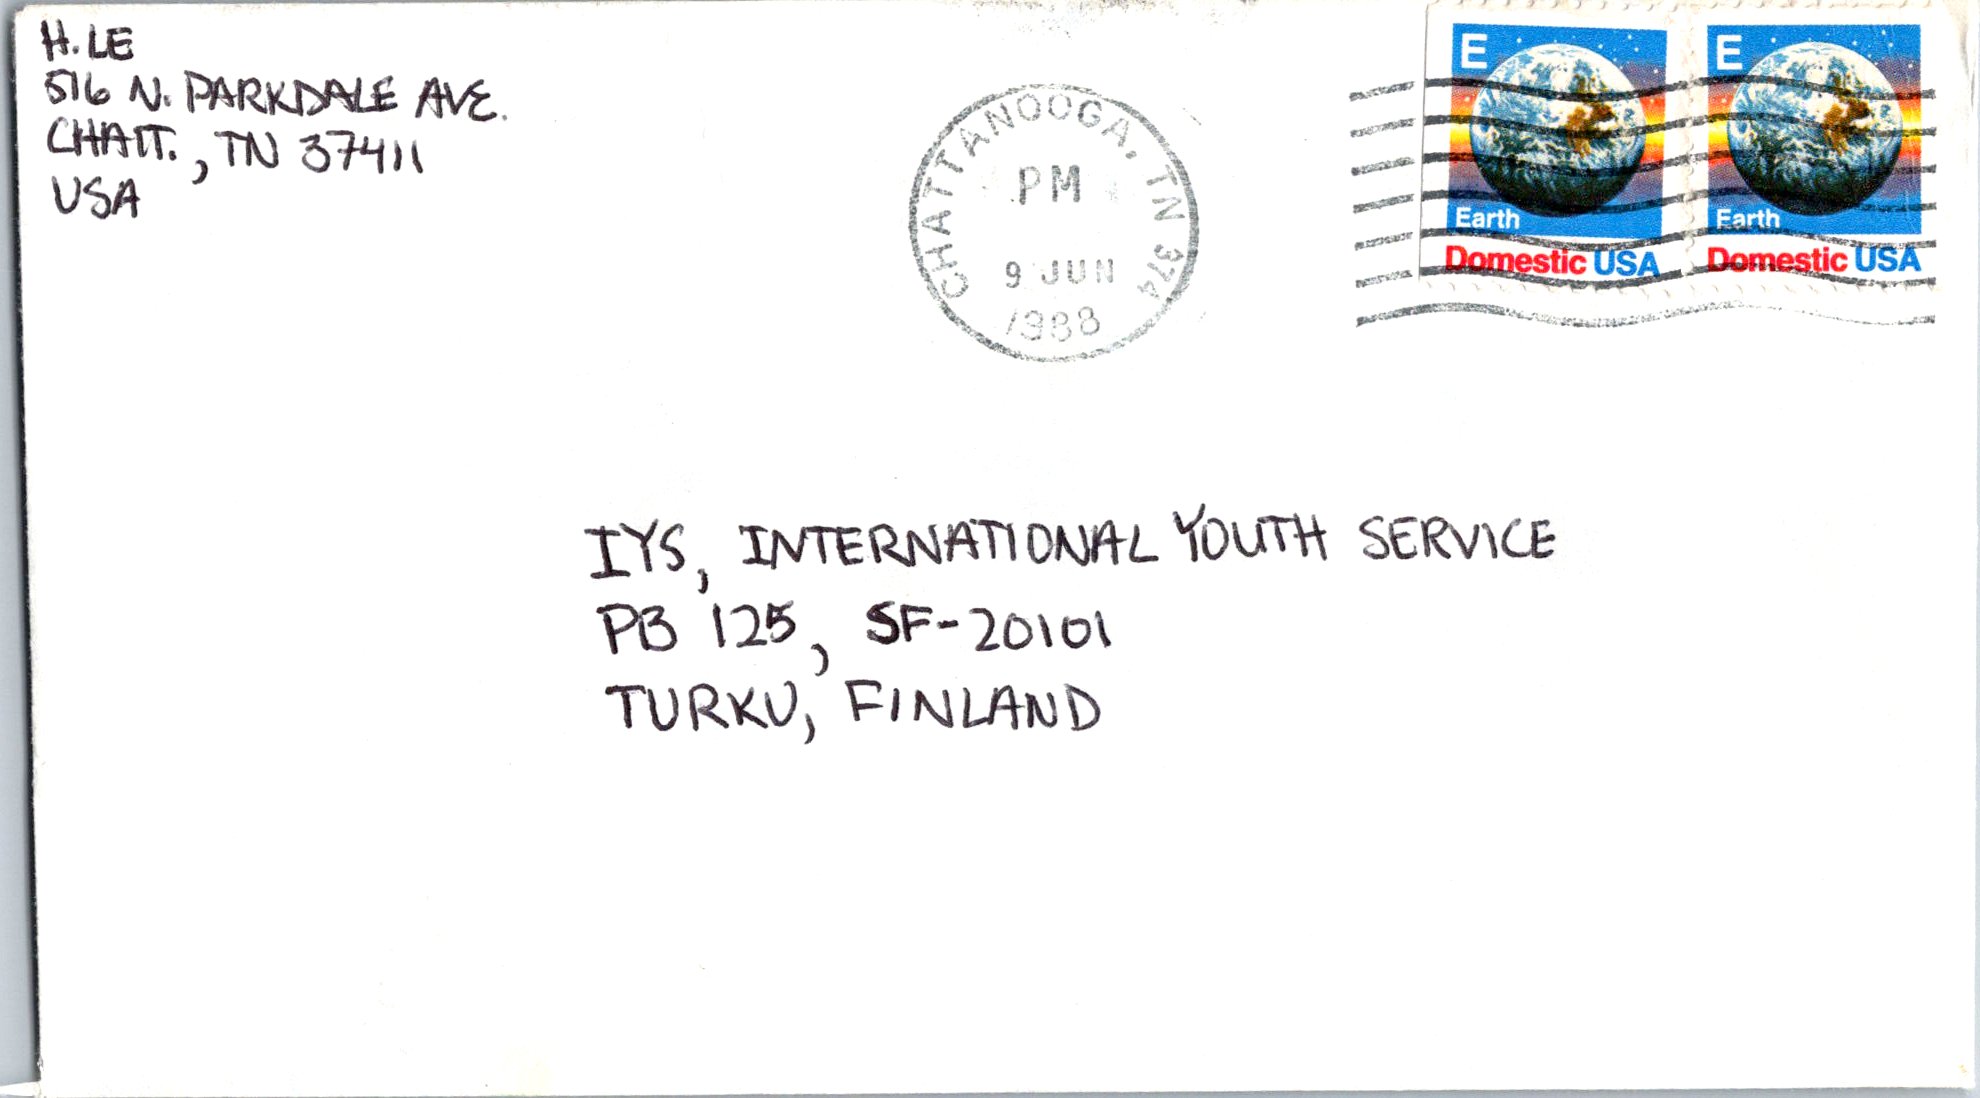 H. LE
516 N. PARKDALE AVE.
CHATT., TN 37411
USA
CHATTANOOGA, TN 374
PM
9 JUN
1988
E
Earth
Domestic USA
E
Earth
Domestic USA
IYS, INTERNATIONAL YOUTH SERVICE
PB 125, SF-20101
TURKU, FINLAND